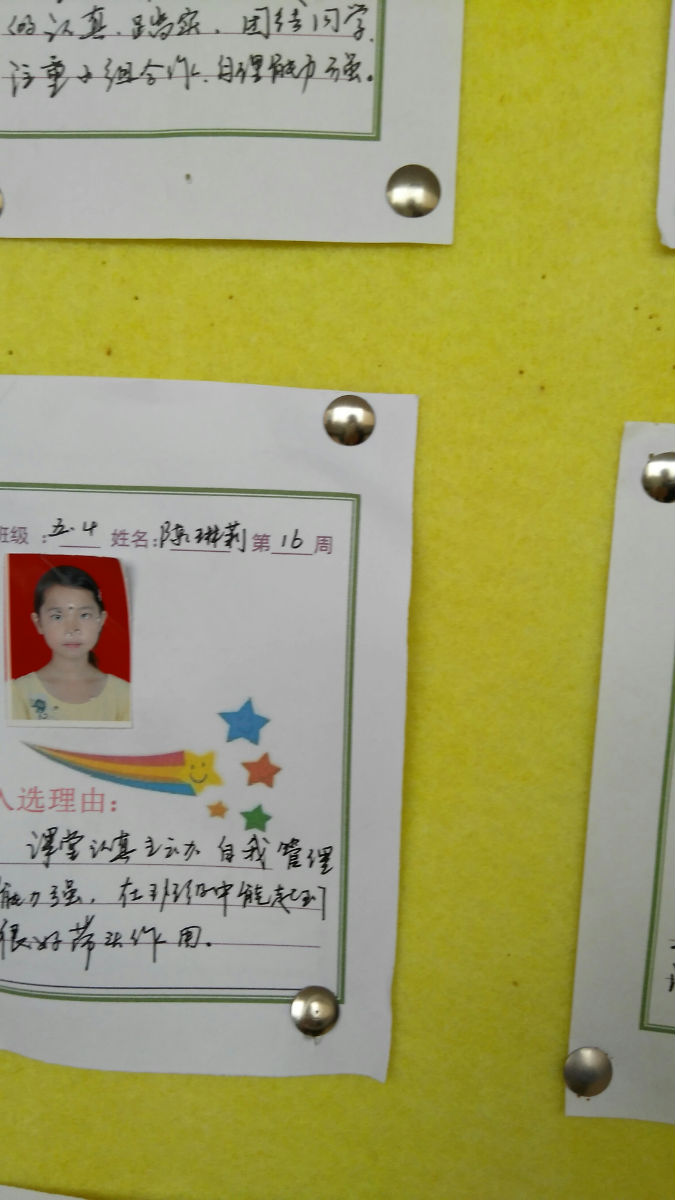 的认真、踏实、团结同学、
注重小组合作、自理能力强。
班级：五.4 姓名：陈琳莉 第16周
入选理由：
课堂认真主动 自我管理
能力强，在班级中能起到
很好带头作用。